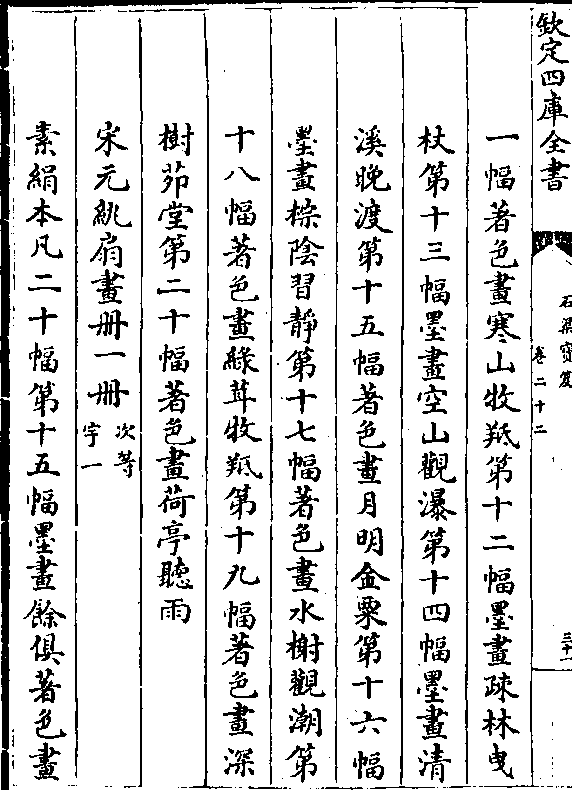 欽定四庫全書
石渠寶笈
卷二十二
三十一
一幅著色畫寒山牧羝第十二幅墨畫疎林曳
杖第十三幅墨畫空山觀瀑第十四幅墨畫清
溪晚渡第十五幅著色畫月明金粟第十六幅
墨畫椶陰習靜第十七幅著色畫水榭觀潮第
十八幅著色畫緑茸牧羝第十九幅著色畫深
樹茆堂第二十幅著色畫荷亭聽雨
宋元紈扇畫冊一冊
次等
宇一
素絹本凡二十幅第十五幅墨畫餘俱著色畫